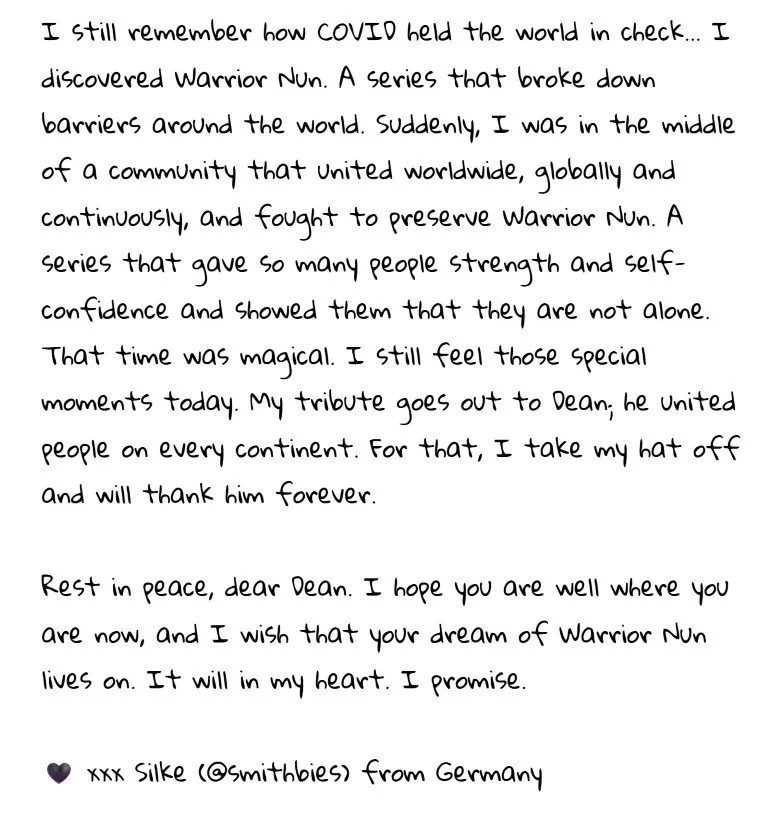 I still remember how COVID held the world in check... I
discovered Warrior Nun. A series that broke down
barriers around the world. Suddenly, I was in the middle
of a community that united worldwide, globally and
continuously, and fought to preserve Warrior Nun. A
series that gave so many people strength and self-
confidence and showed them that they are not alone.
That time was magical. I still feel those special
moments today. My tribute goes out to Dean; he united
people on every continent. For that, I take my hat off
and will thank him forever.
Rest in peace, dear Dean. I hope you are well where you
are now, and I wish that your dream of Warrior Nun
lives on. It will in my heart. I promise.
🖤 xxx Silke (@smithbies) from Germany